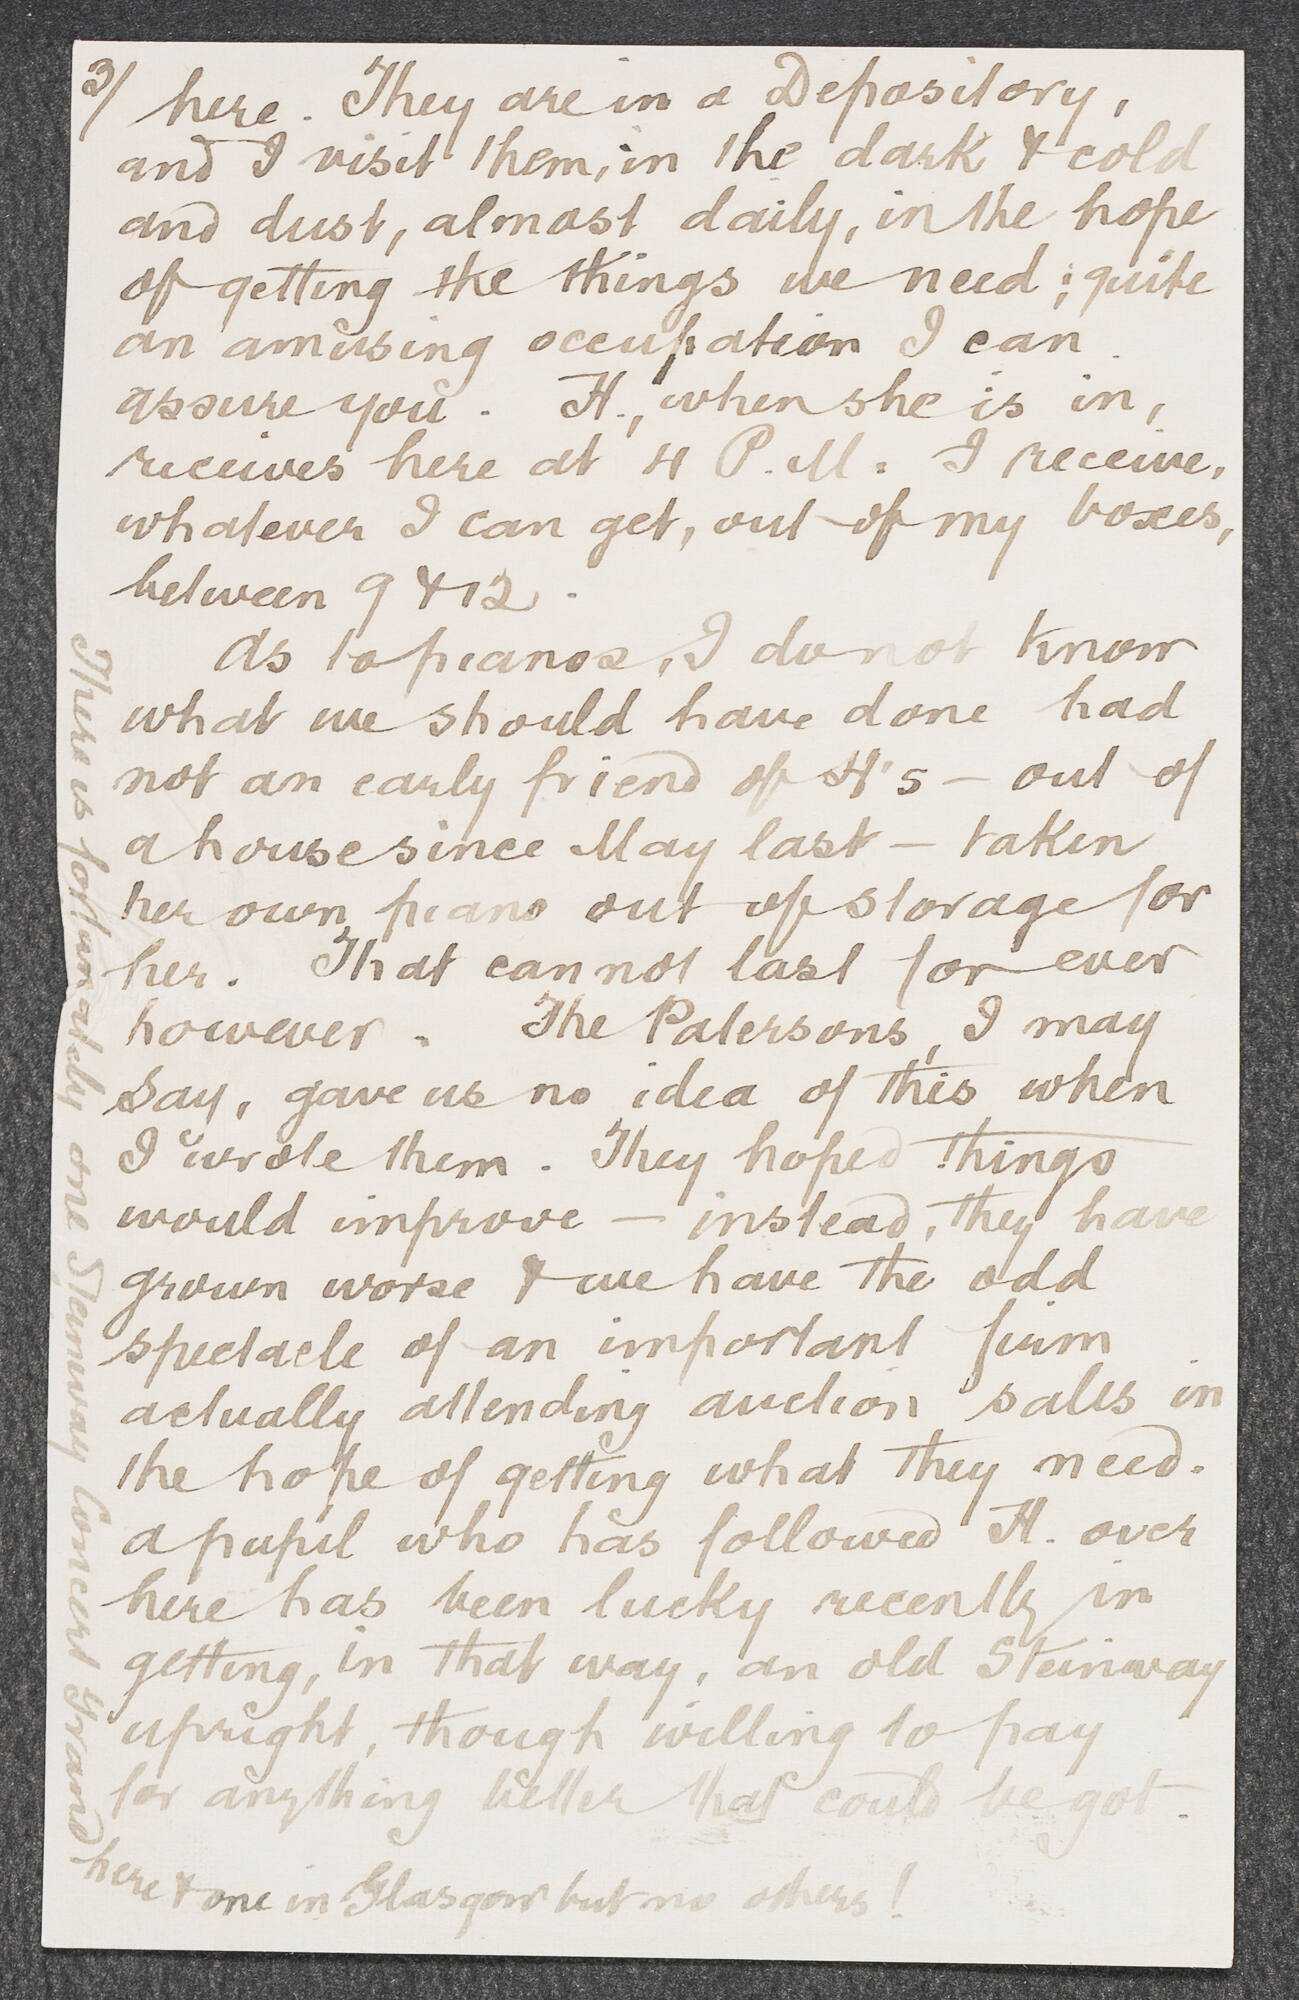 3/ here. They are in a Depository,
and I visit them, in the dark & cold
and dust, almost daily, in the hope
of getting the things we need; quite
an amusing occupation I can
assure you. H., when she is in,
receives here at 4 P.M. I receive,
whatever I can get, out of my boxes,
between 9 & 12.
As to pianos, I do not know
what we should have done had
not an early friend of H's – out of
a house since May last – taken
her own piano out of storage for
her. That cannot last for ever
however. The Patersons, I may
say, gave us no idea of this when
I wrote them. They hoped things
would improve – instead, they have
grown worse & we have the odd
spectacle of an important firm
actually attending auction sales in
the hope of getting what they need.
A pupil who has followed H. over
here has been lucky recently in
getting, in that way, an old Steinway
upright, though willing to pay
for anything better that could be got.
There is fortunately one Steinway Concert grand
here & one in Glasgow but no others!